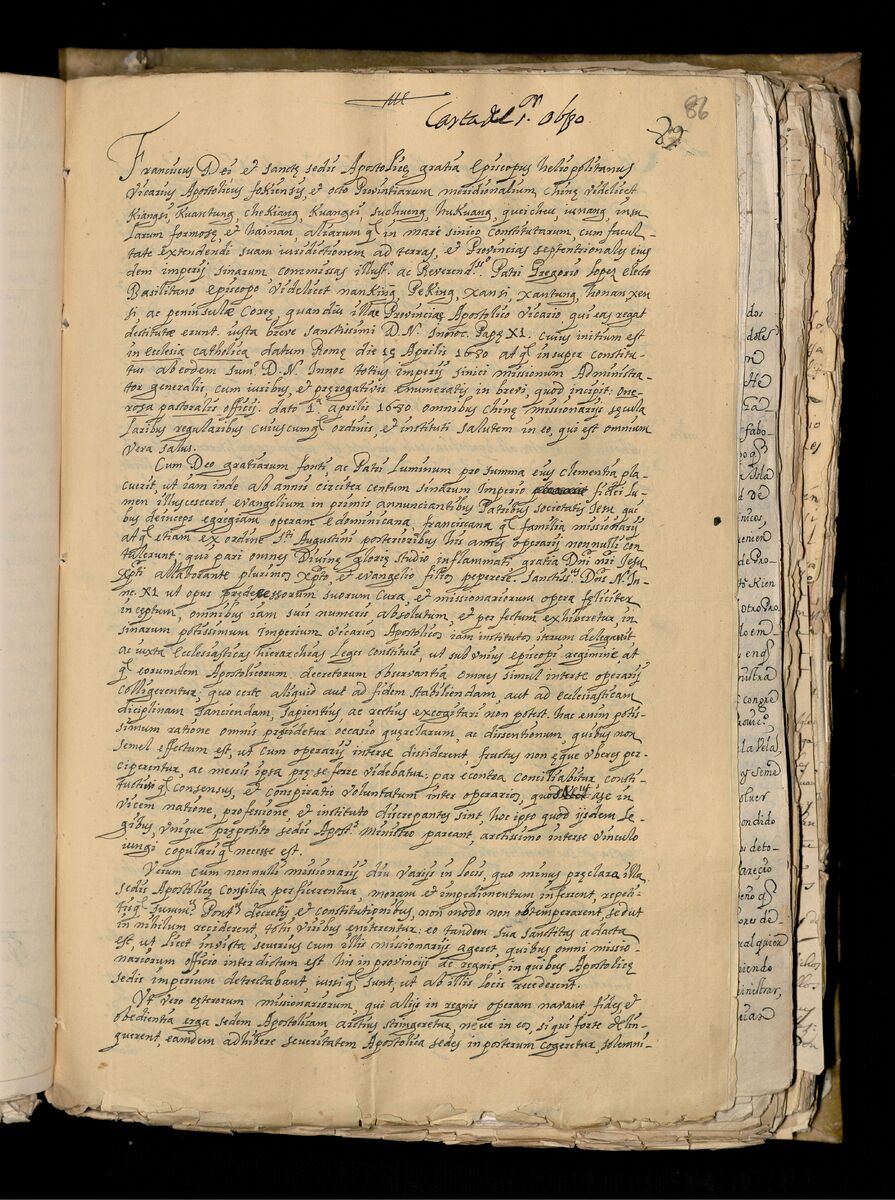 Carta del Sr. Obpo
86
82
Franciscus Dei et sanctę sedis Apostolicę gratia Episcopus heliopolitanus
Vicarius Apostolicus fokiensis, et octo Provintiarum meridionalium Chinę videlicet
Kiangsi, Kuantung, chekiang, Kuangsi, suchueng, hukuang, queicheu, iunang, insu
larum formosę, et hainan aliarum q͞ in mari sinico constitutarum cum facul-
tate extendendi suam iurisdictionem ad terras, et Provincias septentrionales eius
dem imperij sinarum commissas illustº. ac Reverendssº. Patri Gregorio lopez electo
Basilitano Episcopo videlicet nanking, Peking, xansi, xantung, honan xen
si, ac peninsulæ Coreę, quandiu illae Provinciae Apostolico Vicario qui eas regat
destitutæ erunt. iuxta breve sanctissimi D. N. Innoc. Papę XI. cuius initium est
in ecclesia catholica datum Romę die 15 Aprilis 1680 at q͞ insuper constitu-
tus ab eodem sumº. D. N. Innoc totius imperij sinici missionum Administra-
tor generalis, cum iuribus, et pręrogativis enumeratis in brevi, quod incipit: One-
rosa pastoralis officij. dato 1ª aprilis 1680 omnibus Chinę missionarijs sęcula
laribus regularibus cuiuscumq͞ ordinis, et instituti salutem in eo, qui est omnium
vera salus.
Cum Deo gratiarum fonti, ac Patri luminum pro summa eius clementia pla
cuerit, ut iam inde ab annis circiter centum sinarum Imperio fidei lu-
men illuscesceret, evangelium in primis annunciantibus Patribus societatis Iesu, qui
bus deinceps egregiam operam è dominicana, franciscana q͞ familia missionarij
at q͞ etiam ex ordine Sti Augustini posterioribus his annis operarij nonnulli con
tulerunt: qui pari omnes Divinę glorię studio inflammati, gratia Dni nri Jesu
Xpti allaborante plurimos Xpto, et evangelio filios peperere. sanctiss. Dns N. In-
noc. XI ut opus prędecessorum suorum cura, et missionariorum opera feliciter
inceptum, omnibus iam suis numeris, absolutum, et perfectum exhiberetur, in
sinarum potissimum Imperium vicarios Apostolicos iam institutos iterum delegavit
ac iuxta Ecclesiasticas hierarchias leges constituit, ut sub unius episcopi regimine at
q͞ eorumdem Apostolicorum decretorum observantia omnes simul inter se operarij
colligerentur; quo certe aliquid aut ad fidem stabiliendam aut ad ecclesiasticam
disciplinam sanciendam, sapientius, ac rectius excogitari non potest. hac enim potis-
simum ratione omnis pręcidetur occasio quęrelarum, ac dissentionum, quibus non
semel effectum est, ut cum operarij inter se dissiderent, fructus non ęque uberes per-
ciperentur, ac messis ipsa prę se ferre videbatur: par econtra conciliabitur consti-
tutis q͞ consensus, et conspiratio voluntatum inter operarios, quod licet a se in
vicem natione, profesione, et instituto discrepantes sint, hoc ipso quod ijsdem le-
gibus, unique pręposito sedis Apost. ministro pareant, arctissimo inter se vinculo
iungi copulari q͞ necesse est.
Verum cum nonnulli missionarij diu varijs in locis, quo minus pręclara illa
sedis Apostolicę consilia perficerentur, moram et impedimentum inferent, repeti-
tis q͞ summ. Pont. decretis et constitutionibus, non modo non obtemperarent, sed ut
in nihilum reciderent, totis viribus eniterentur: eo tandem sua sanctitas adacta
est, ut licet invita severius cum illis missionarijs ageret, quibus omni missio-
nariorum officio interdictum est his in provincijs ac regnis, in quibus Apostolicę
sedis imperium detrectabant, iussi q͞ sunt, ut ab illis locis recederent.
Ut vero cęterorum missionariorum, qui alijs in regnis operam navant fides et
obedientia erga sedem Apostolicam arctius stringeretur, neve in eos, si qui forte delin-
querent, eamdem adhibere severitatem Apostolica sedes in posterum cogeretur, solemni-